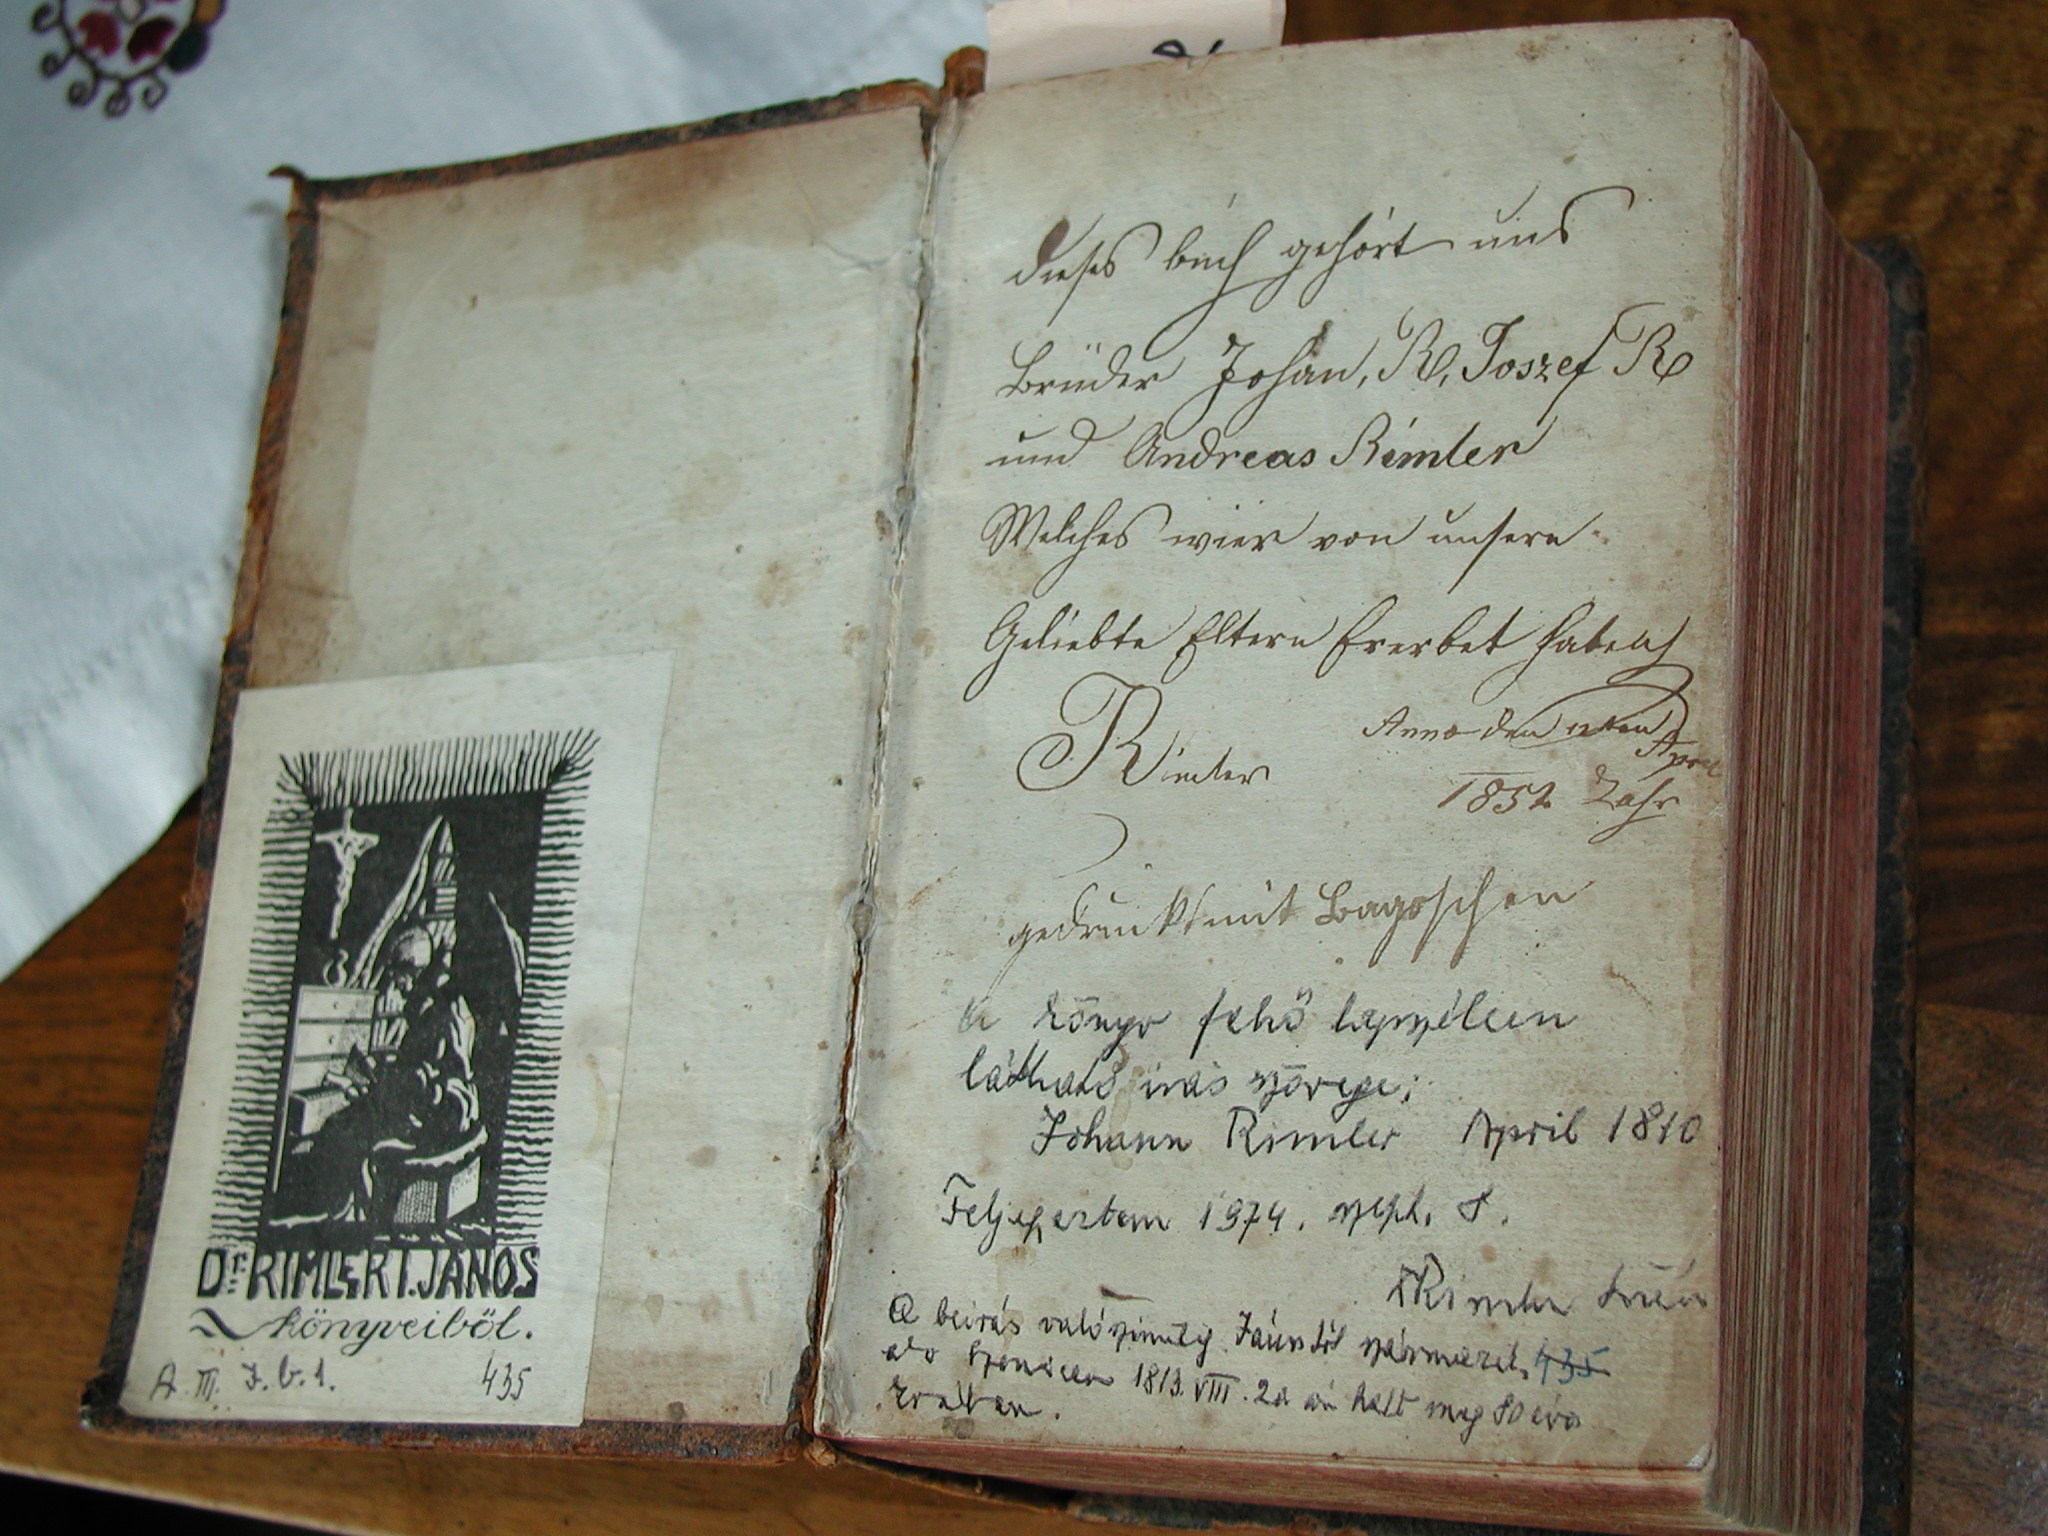 Dr. RIMLER I. JÁNOS
könyveiből.
A. III. I. b. 1. 435
dieses buch gehört uns
Brüder Johan, R, Joszef R
und Andreas Rimler
Welches wier von unsern
Geliebte Eltern Ererbet haben
Rimler
Anno den
April
1852 Jahr
gedrukt mit
A könyv felső
látható írás szövege:
Johann Rimler April 1810
Feljegyeztem 1974. szept. 8.
Rimler
A beírás valószínűleg származik, 435
1813. VIII. 2 án halt meg 80 éves
korában.